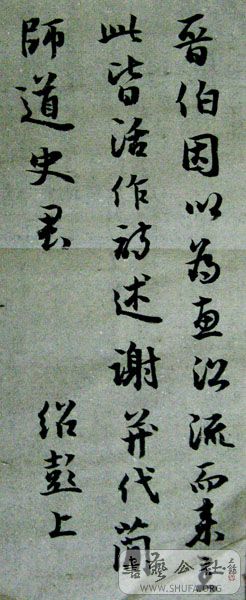 晉伯因以為惠沿流而來至
此皆活作詩述謝并代簡
師道史君
紹彭上
書藝公社
WWW.SHUFA.ORG